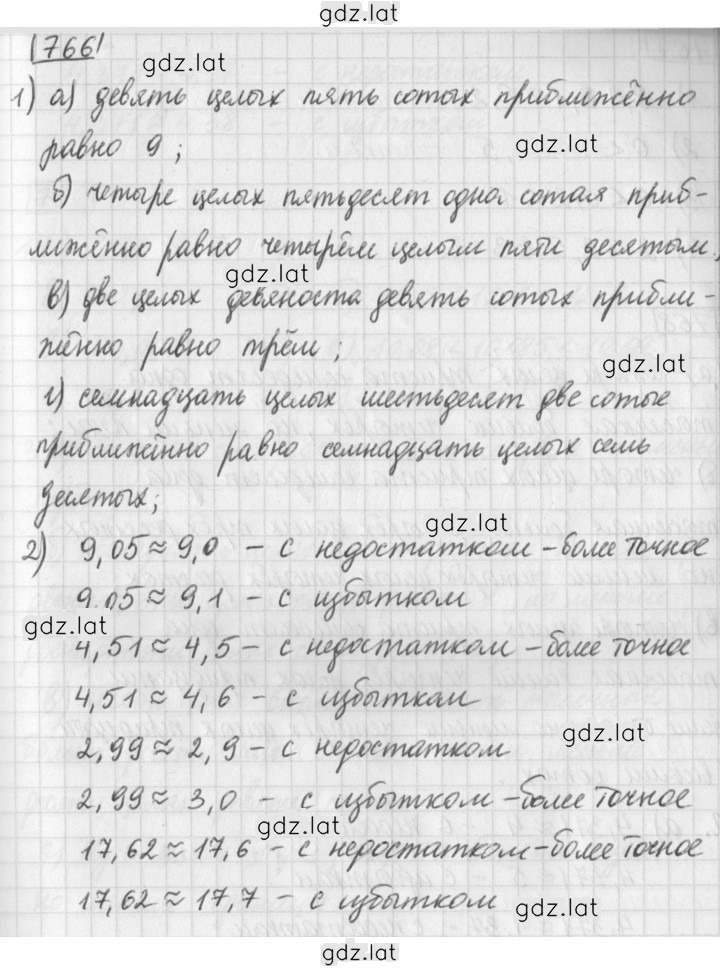 gdz.lat
1766
gdz.lat
1) а) девять целых пять сотых приближённо
равно 9;
gdz.lat
б) четыре целых пятьдесят одна сотая приб-
лижённо равно четырём целым пяти десятым,
gdz.lat
в) две целых девяноста девять сотых прибли-
жённо равно трём;
г) семнадцать целых шестьдесят две сотые
приближённо равно семнадцать целых семь
десятых;
gdz.lat
2) 9,05 ≈ 9,0 – с недостатком – более точное
9.05 ≈ 9,1 – с избытком
gdz.lat
4,51 ≈ 4,5 – с недостатком – более точное
4,51 ≈ 4,6 – с избытком
gdz.lat
2,99 ≈ 2,9 – с недостатком
2,99 ≈ 3,0 – с избытком – более точное
gdz.lat
17,62 ≈ 17,6 – с недостатком – более точное
17,62 ≈ 17,7 – с избытком
gdz.lat
gdz.lat